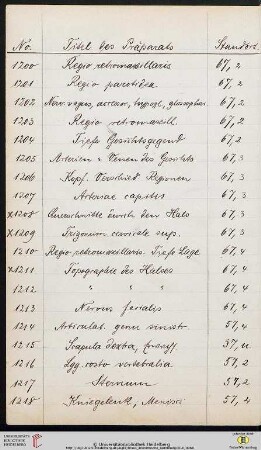 No. Titel des Präparats Standort
1200 Regio retromaxillaris 67, 2
1201 Regio parotidea 67, 2
1202 Nerv. vagus, access., hypogl., glossophar. 67, 2
1203 Regio retromaxill. 67, 2
1204 Tiefe Gesichtsgegend 67, 2
1205 Arterien u Venen des Gesichts 67, 3
1206 Kopf. Verschied. Regionen 67, 3
1207 Arteriae capitis 67, 3
x1208 Querschnitte durch den Hals 67, 3
x1209 Trigonum cervicale sup. 67, 3
1210 Regio retromaxillaris. Tiefe Lage 67, 4
x1211 Topographie des Halses 67, 4
1212 " " " 67, 4
1213 Nervus facialis 67, 4
1214 Articulat. genu sinistr. 57, 4
1215 Scapula dextra, 57, 4
1216 Lgg. costo vertebralia 57, 2
1217 Sternum 57, 2
1218 Kniegelenk, Menisci 57, 4
UNIVERSITÄTS-BIBLIOTHEK HEIDELBERG
© Universitätsbibliothek Heidelberg